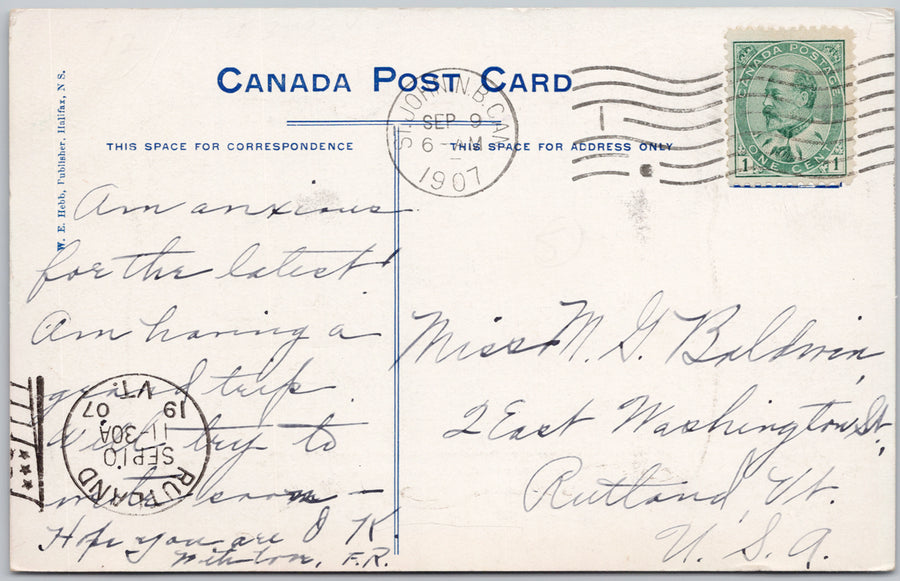 CANADA POST CARD
THIS SPACE FOR CORRESPONDENCE
THIS SPACE FOR ADDRESS ONLY
W. E. Hebb, Publisher, Halifax, N S.
ST. JOHN. N.B. CAN.
SEP 9
6 - AM
1907
CANADA POSTAGE
1 ONE CENT 1
Am anxious
for the latest!
Am having a
grand trip
Will try to
write soon -
Hope you are O K.
With love, F.R.
Miss M. G. Baldwin,
2 East Washington St.
Rutland, Vt.
U. S. A.
RUTLAND
SEP 10
11-30A
19 07
VT.